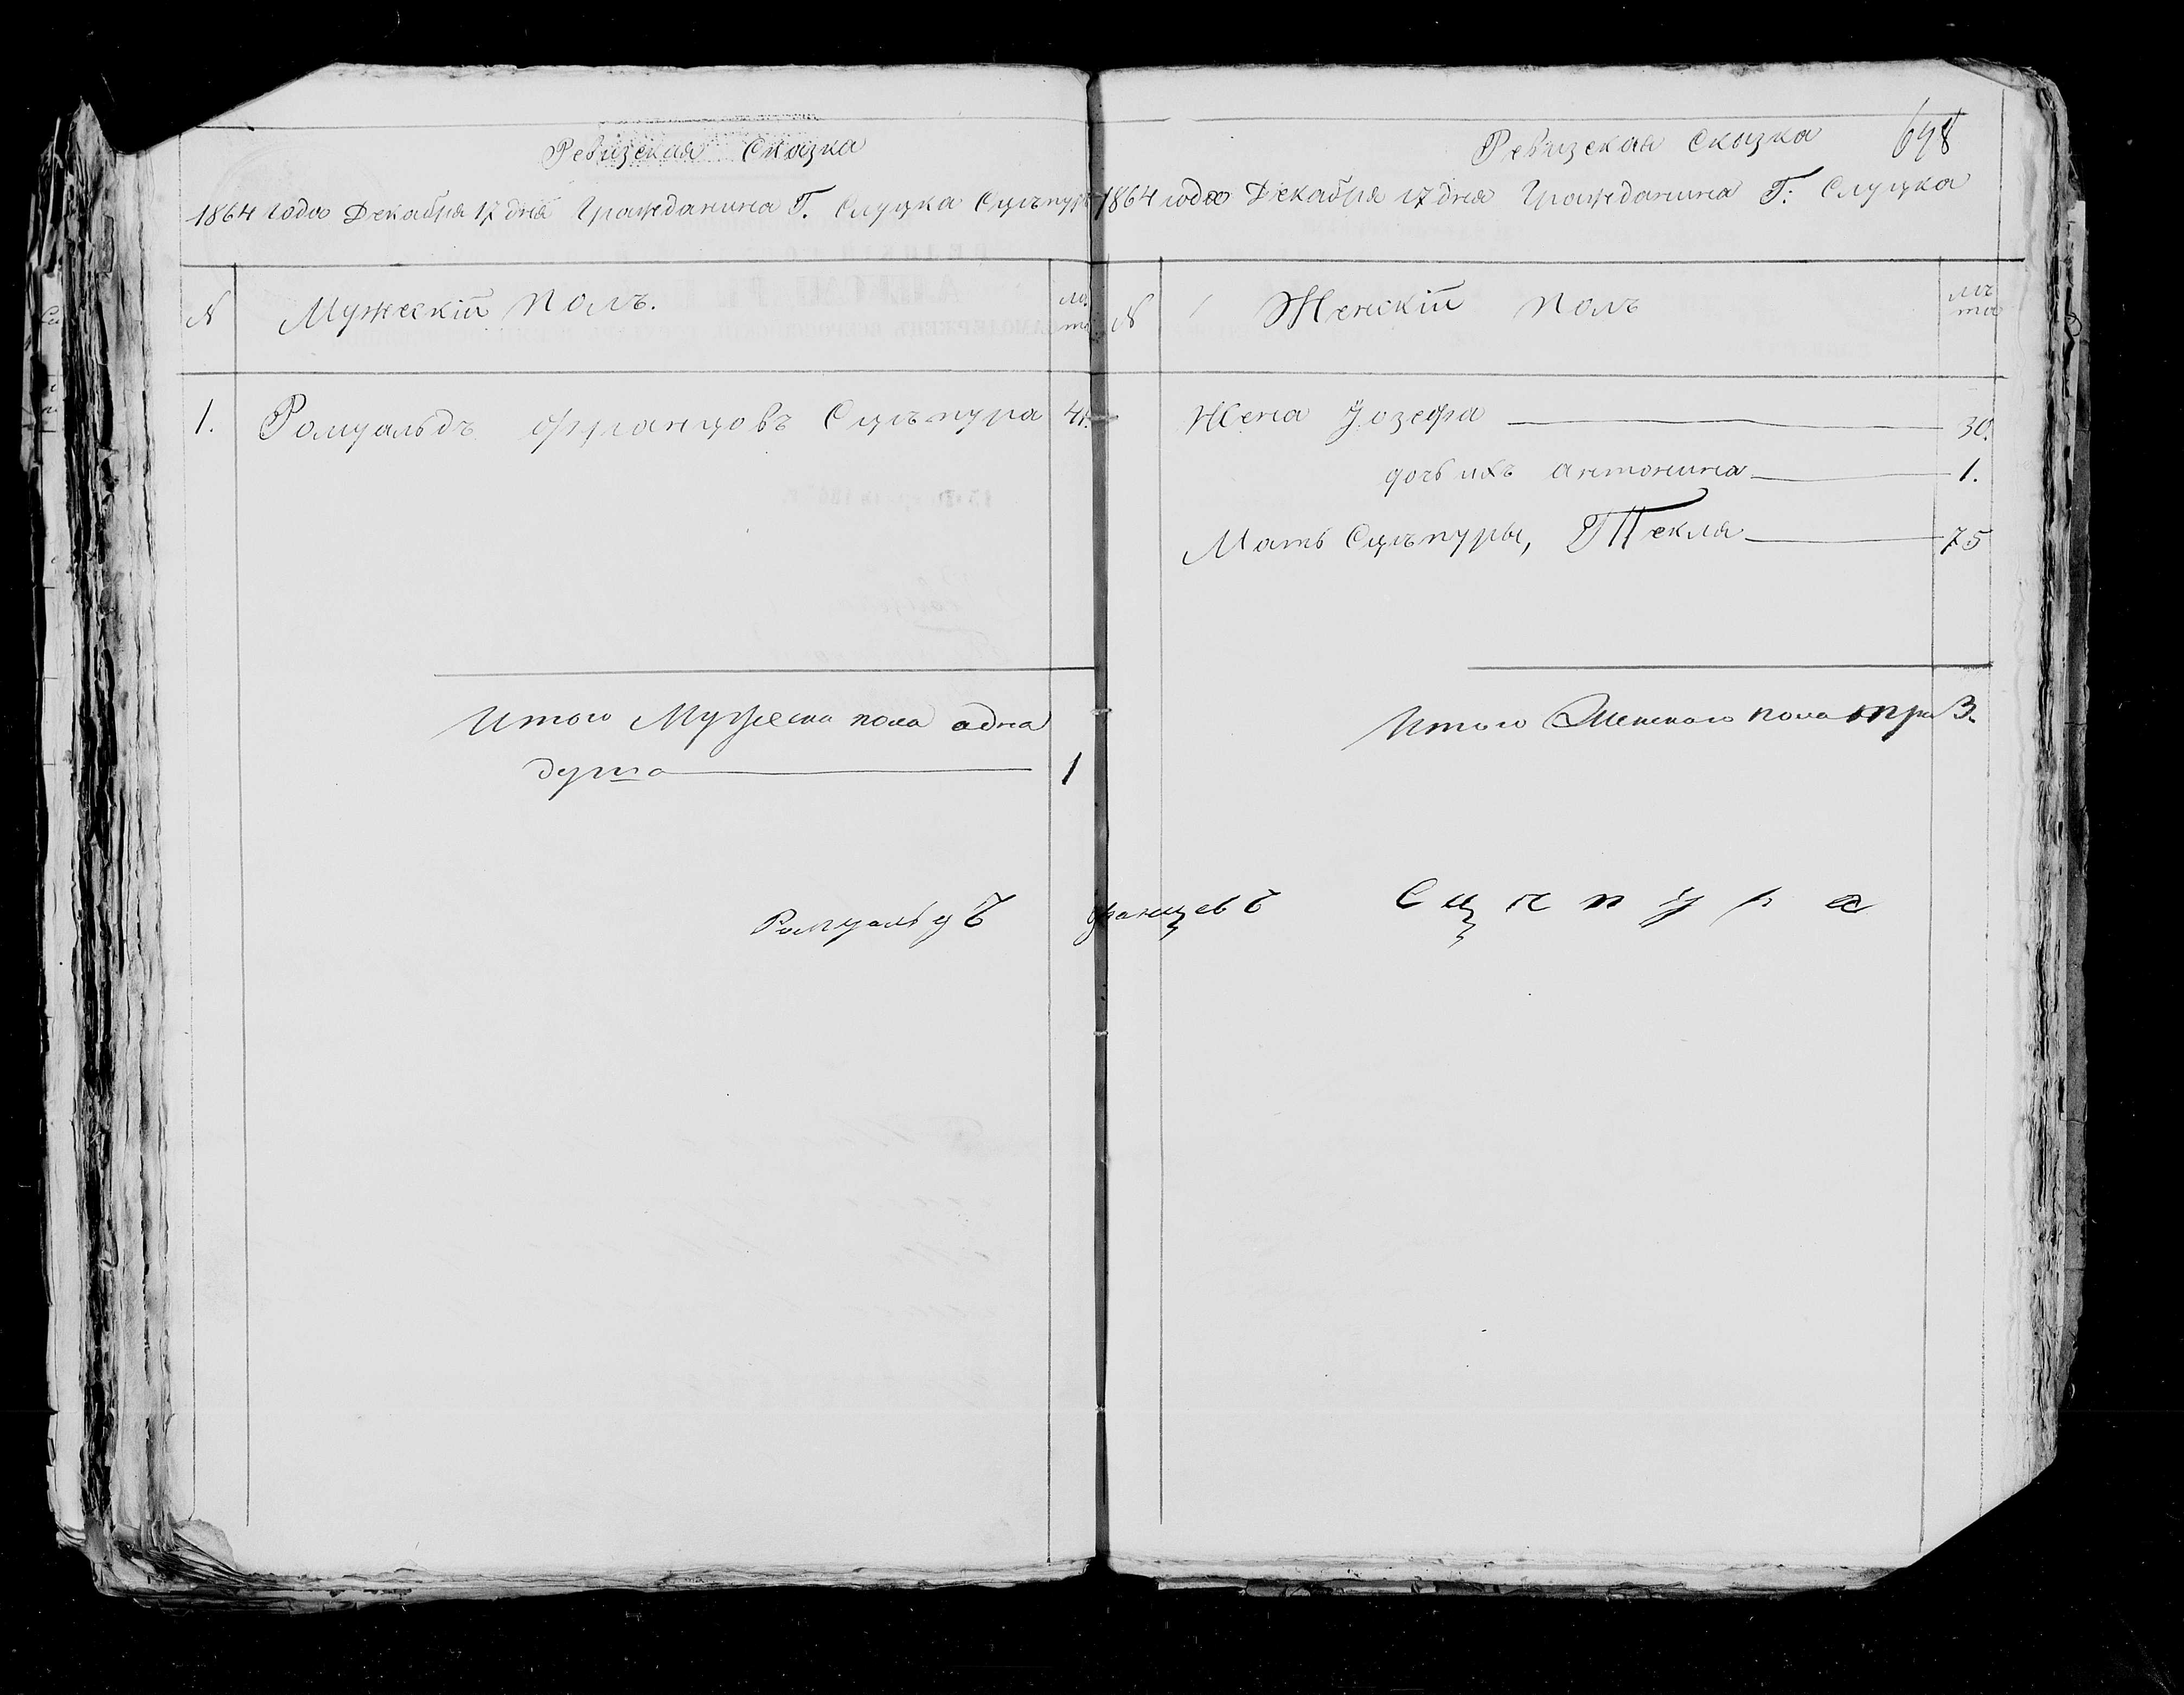 Ревизская Сказка
1864 года Декабря 17 дня Гражданина Г. Слуцка Сцѣпуры
N Мужескій полъ. лѣта
1. Ромуальдъ Францовъ Сцѣпура 41.
Итого Мужеска пола одна
душа 1
Ромуальдъ Францевъ Сцѣпура
698
Ревизская Сказка
1864 года Декабря 17 дня Гражданина Г. Слуцка
N Женскій полъ лѣта
Жена Іозефа 30.
дочь ихъ антонина 1.
Мать Сцѣпуры, Текля 75
Итого Женскаго пола три 3.